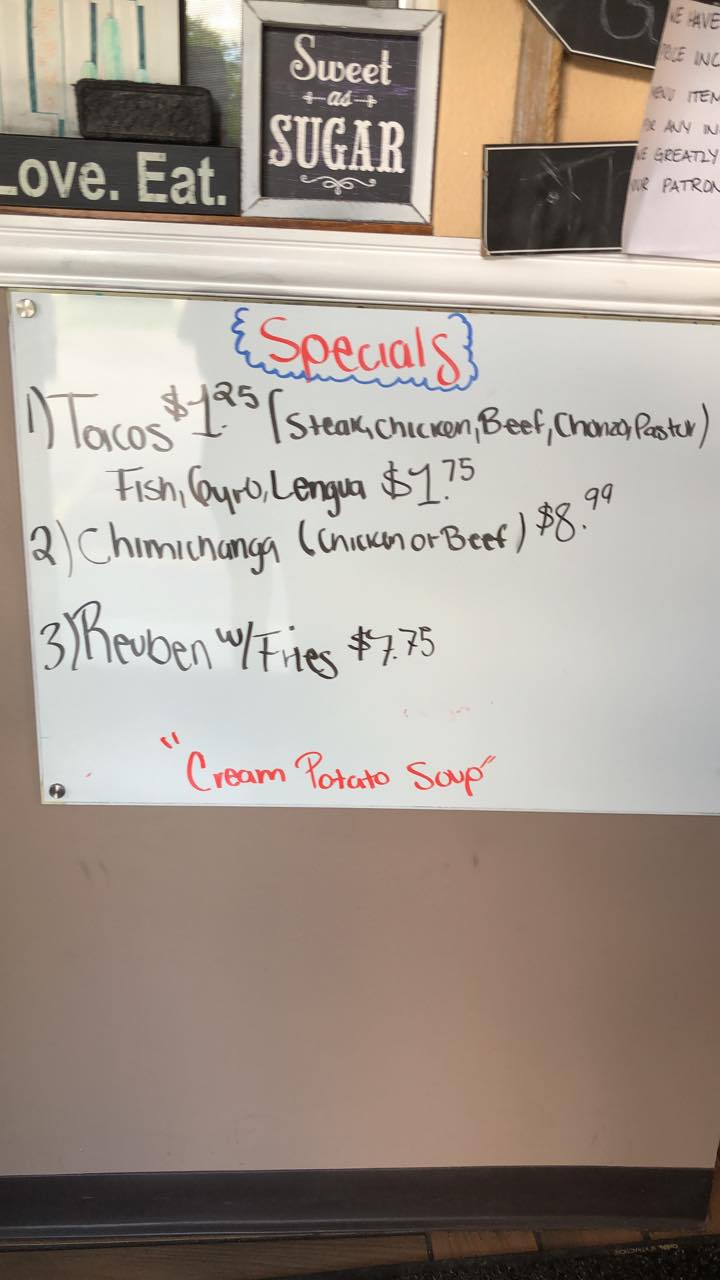 Sweet
as
SUGAR
Love. Eat.
WE HAVE
PRICE INC
MENU ITEM
FOR ANY IN
WE GREATLY
OUR PATRON
Specials
1) Tacos $1.25 (Steak, Chicken, Beef, Chorizo, Pastor)
Fish, Gyro, Lengua $1.75
2) Chimichanga (Chicken or Beef) $8.99
3) Reuben w/ Fries $7.75
"Cream Potato Soup"